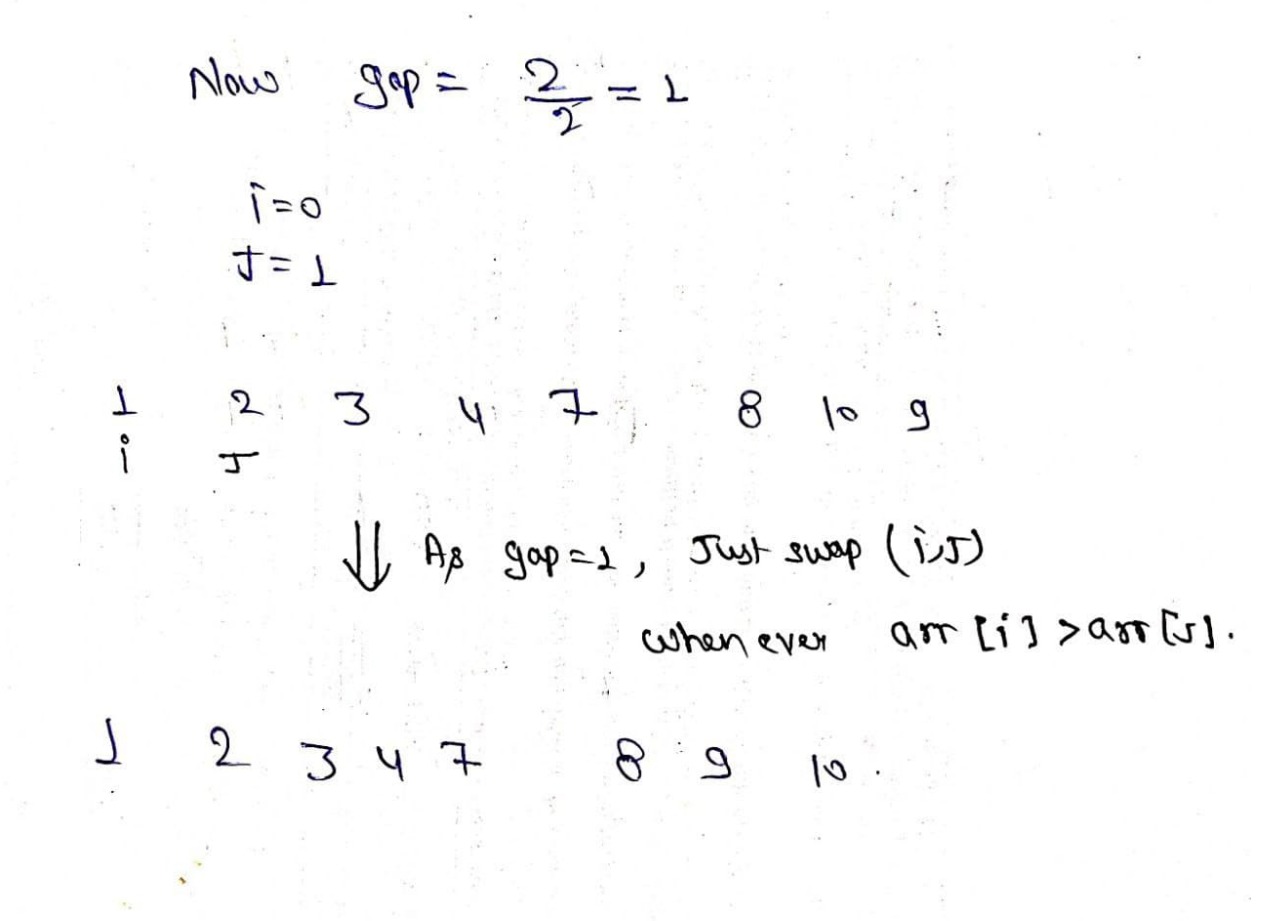 Now gap = 2/2 = 1
i=0
J=1
1 2 3 4 7 8 10 9
i J
⇓ As gap=1, Just swap (i,J)
whenever arr[i] > arr[J].
1 2 3 4 7 8 9 10.